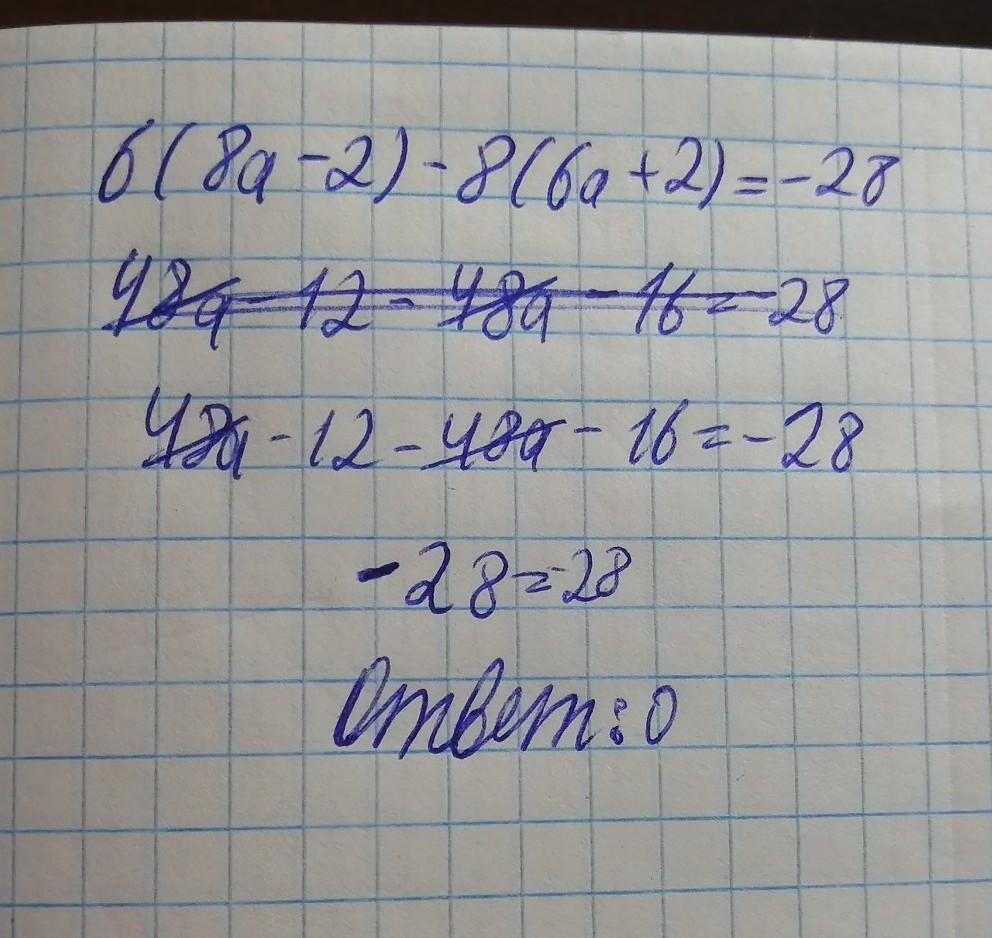 6(8a-2)-8(6a+2)=-28
48a-12-48a-16=-28
48a-12-48a-16=-28
-28=-28
Ответ: 0